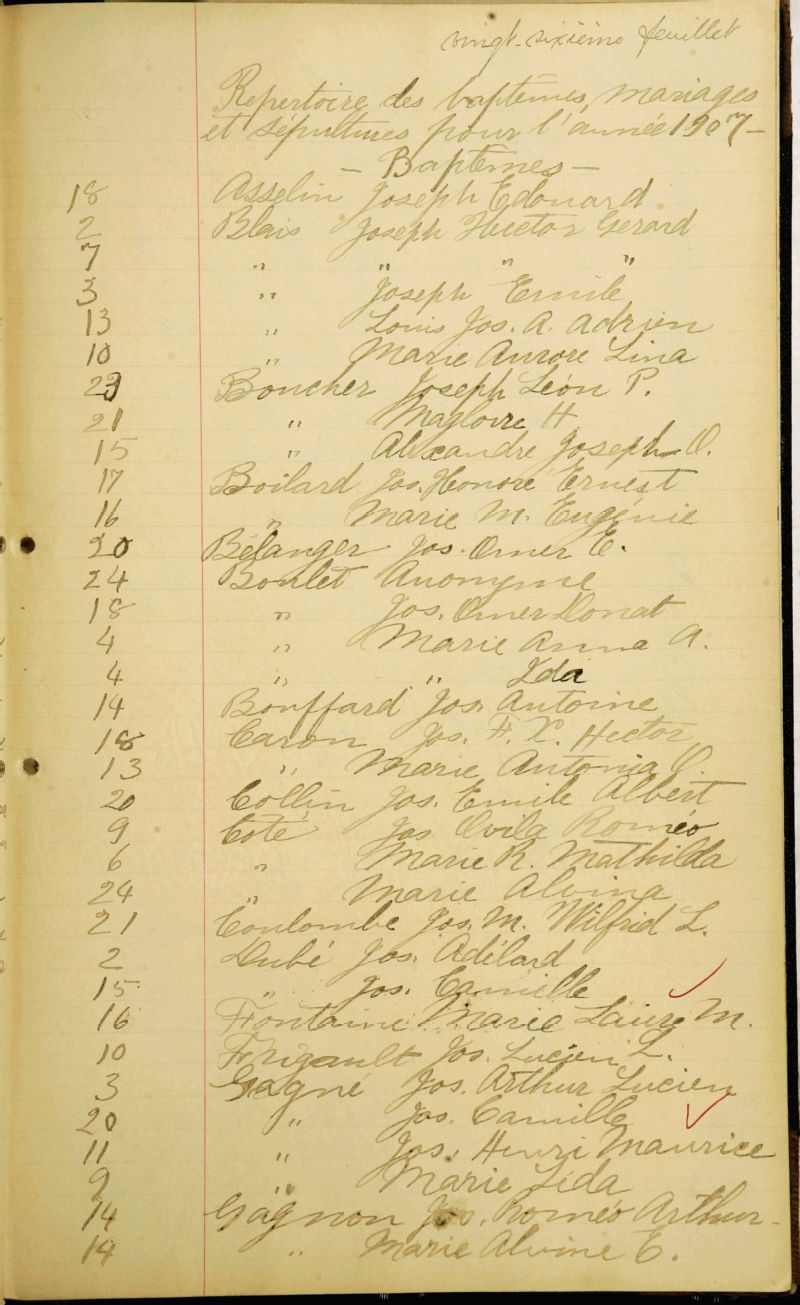 vingt-sixième feuillet
Repertoire des baptêmes, mariages
et sépultures pour l'année 1907-
- Baptêmes -
18 Asselin Joseph Edouard
2 Blais Joseph Hector Gerard
7 " " " "
3 " Joseph Emile
13 " Louis Jos. A. Adrien
10 " Marie Aurore Lina
23 Boucher Joseph Léon P.
21 " Magloire H
15 " Alexandre Joseph O.
17 Boilard Jos. Honoré Ernest
16 " Marie M. Eugénie
20 Bélanger Jos. Omer E.
24 Boulet Anonyme
18 " Jos. Omer Donat
4 " Marie Anna A.
4 " " Ida
14 Bouffard Jos. Antoine
18 Caron Jos. F. X. Hector
13 " Marie Antonia O.
20 Collin Jos. Emile Albert
9 Coté Jos Ovila Roméo
6 " Marie R. Mathilda
24 " Marie Alvina
21 Coulombe Jos. M. Wilfrid L.
2 Dubé Jos. Adélard
15 " Jos. Camille
16 Fontaine Marie Laure M.
10 Frigault Jos. Lucien L.
3 Gagné Jos. Arthur Lucien
20 " Jos. Camille
11 " Jos. Henri Maurice
9 " Marie Lida
14 Gagnon Jos. Roméo Arthur-
14 " Marie Alvine E.